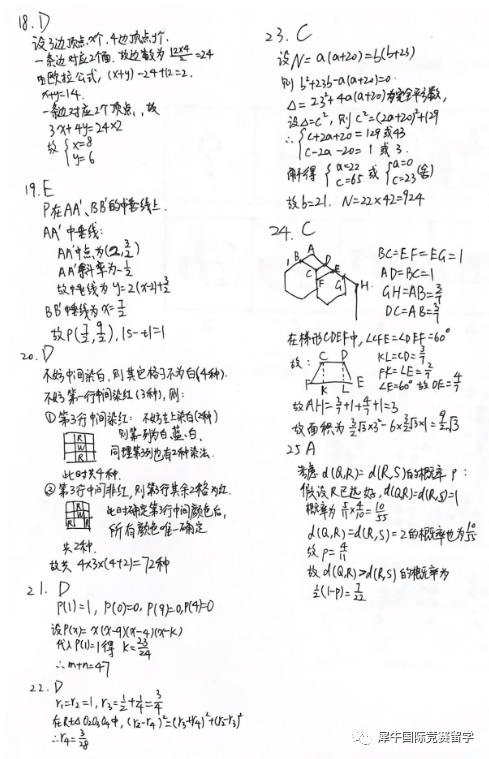 18. D
设3边顶点x个, 4边顶点y个.
一条边对应2个面. 故边数为 12×4/2 = 24
由欧拉公式, (x+y)-24+12=2.
x+y=14.
一条边对应2个顶点, 故
3x+4y=24×2
故 { x=8
y=6
19. E
P在AA'、BB'的中垂线上.
AA'中垂线:
AA'中点为(2, 3/2)
AA'斜率为-1/2
故中垂线为 y=2(x-2)+3/2
BB'中垂线为 x=7/2
故P(7/2, 9/2), |s-t|=1
20. D
不妨中间染白, 则其它格子不为白(4种).
不妨第一行中间染红(3种), 则:
① 第3行中间染红: 不妨左上染白(2种)
则第1列为白、蓝、白.
同理第3列也有2种染法.
R
W
R
此时共4种.
② 第3行中间非红, 则第3行其余2格为红.
R
W
R R
此时确定第3行中间颜色后,
所有颜色唯一确定
共2种.
故共 4×3×(4+2)=72种
21. D
P(1)=1, P(0)=0, P(9)=0, P(4)=0
设P(x)= x(x-9)(x-4)(x-k)
代入P(1)=1得 k=23/24
∴m+n=47
22. D
r₁=r₂=1, r₃=1/2+1/4=3/4
∴r₄=3/28
23. C
设N=a(a+20)=b(b+23)
则 b²+23b-a(a+20)=0.
Δ=23²+4a(a+20)为完全平方数,
设Δ=c², 则 c²=(2a+20)²+129
∴ { c+2a+20=129或43
c-2a-20=1 或 3.
解得 { a=22
c=65 或 { a=0
c=23 (舍)
故b=21. N=22×42=924
24. C
A
B
D
C
E
F
G
H
BC=EF=EG=1
AD=BC=1
GH=AB=3/7
DC=AB=3/7
在梯形CDEF中, ∠CFE=∠DEF=60°
故:
C D
F K L E
KL=CD=3/7
FK=LE=2/7
∠E=60° 故DE=4/7
故AH=3/7+1+4/7+1=3
25 A
考虑 d(Q,R)=d(R,S)的概率 p:
假设R已选好, d(Q,R)=d(R,S)=1
概率为 5/11×4/10=10/55
d(Q,R)=d(R,S)=2的概率也为10/55
故 p=4/11
故 d(Q,R)>d(R,S)的概率为
1/2(1-p)=7/22
犀牛国际竞赛留学